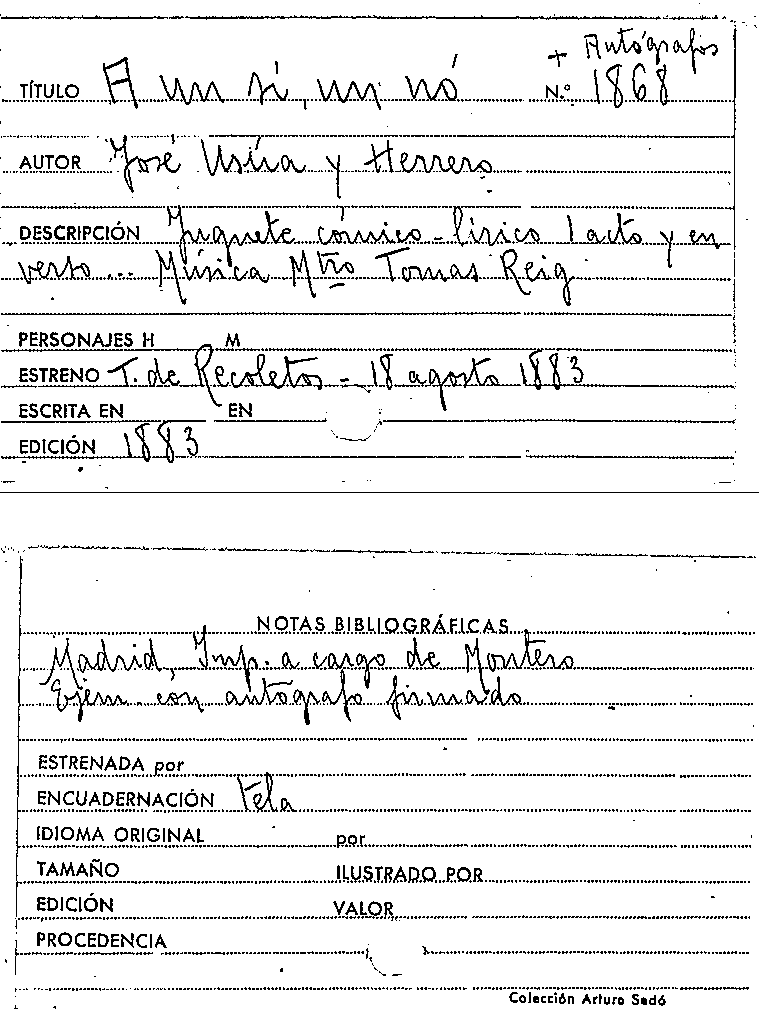 + Autógrafos
TÍTULO A un sí, un nó N.º 1868
AUTOR José Usúa y Herrero
DESCRIPCIÓN Juguete cómico-lírico 1 acto y en
verso... Música Mtro Tomas Reig
PERSONAJES H M
ESTRENO T. de Recoletos - 18 agosto 1883
ESCRITA EN EN
EDICIÓN 1883
NOTAS BIBLIOGRÁFICAS
Madrid, Imp. a cargo de Montero
Ejem. con autógrafo firmado
ESTRENADA por
ENCUADERNACIÓN Tela
IDIOMA ORIGINAL por
TAMAÑO ILUSTRADO POR
EDICIÓN VALOR
PROCEDENCIA
Colección Arturo Sedó